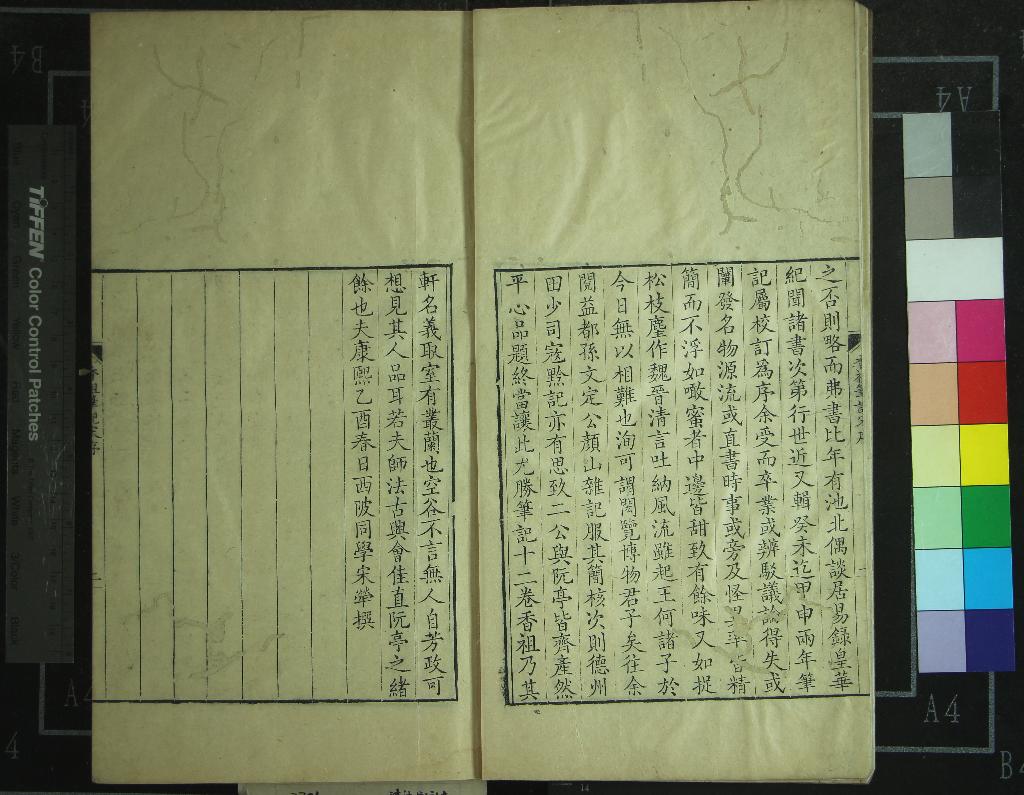 之否則略而弗書比年有池北偶談居易錄皇華
紀聞諸書次第行世近又輯癸未迄甲申兩年筆
記屬校訂爲序余受而卒業或辨駁議論得失或
闡發名物源流或直書時事或旁及怪異率皆精
簡而不浮如噉蜜者中邊皆甜致有餘味又如捉
松枝麈作魏晉清言吐納風流雖起王何諸子於
今日無以相難也洵可謂閎覽博物君子矣往余
閱益都孫文定公顏山雜記服其簡核次則德州
田少司寇黔記亦有思致二公與阮亭皆齊產然
平心品題終當讓此尤勝筆記十二卷香祖乃其
軒名義取室有叢蘭也空谷不言無人自芳政可
想見其人品耳若夫師法古與會佳直阮亭之緒
餘也夫康熙乙酉春日西陂同學宋犖撰
TIFFEN Color Control Patches
B4
A4
A4
A4
A4
4
B4